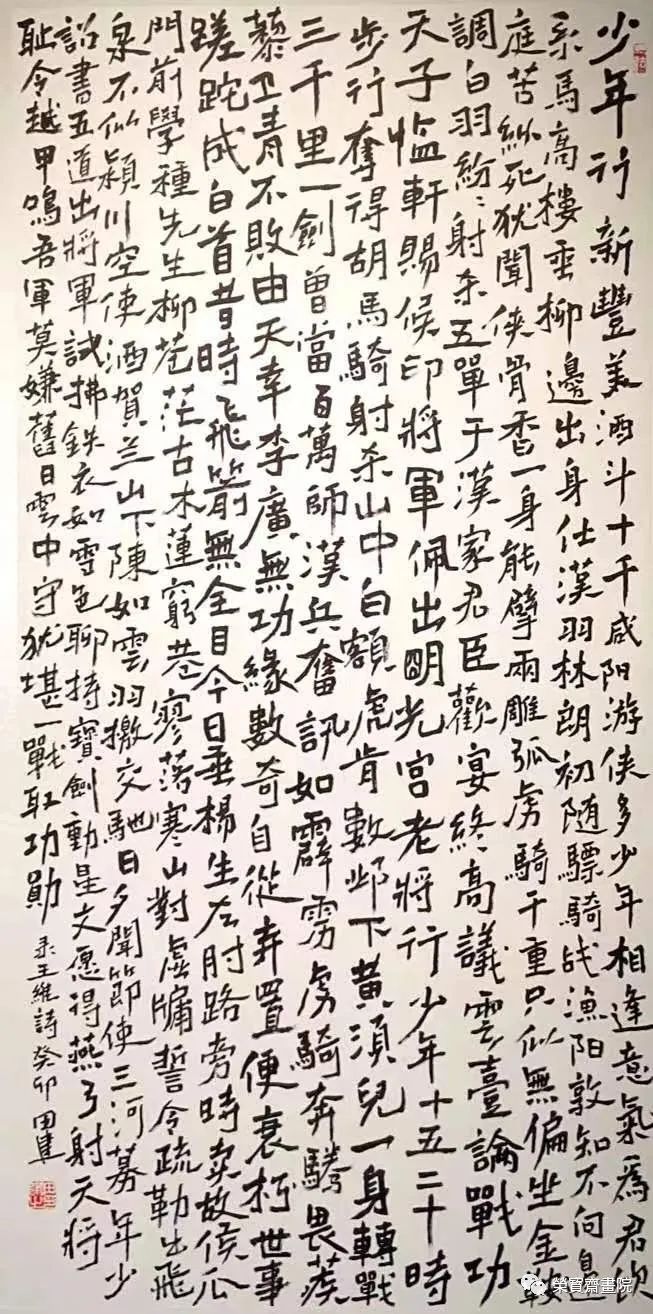 少年行 新豐美酒斗十千咸阳游侠多少年相逢意氣為君飲
系馬高樓垂柳邊出身仕漢羽林朗初随驃騎战漁阳孰知不向邊
庭苦縱死犹聞侠骨香一身能擘兩雕弧虏騎千重只似無偏坐金鞍
調白羽紛々射杀五單于漢家君臣歡宴終高議雲臺論戰功
天子臨軒賜候印將軍佩出明光宮老將行少年十五二十時
步行奪得胡馬騎射杀山中白額虎肯數邺下黃須兒一身轉戰
三千里一劍曾當百萬師漢兵奮訊如霹雳虏騎奔騰畏蒺
藜卫青不敗由天幸李廣無功緣數奇自從弃置便衰朽世事
蹉跎成白首昔時飞箭無全目今日垂楊生左肘路旁時卖故侯瓜
門前學種先生柳苍茫古木蓮窮巷寥落寒山對虛牖誓令疏勒出飛
泉不似潁川空使酒賀兰山下陳如雲羽檄交馳日夕聞節使三河募年少
詔書五道出將軍試拂鉄衣如雪色聊持寶劍動星文愿得燕弓射天將
耻令越甲鳴吾軍莫嫌舊日雲中守犹堪一戰取功勛 录王維詩癸卯田建
榮寶齋畫院